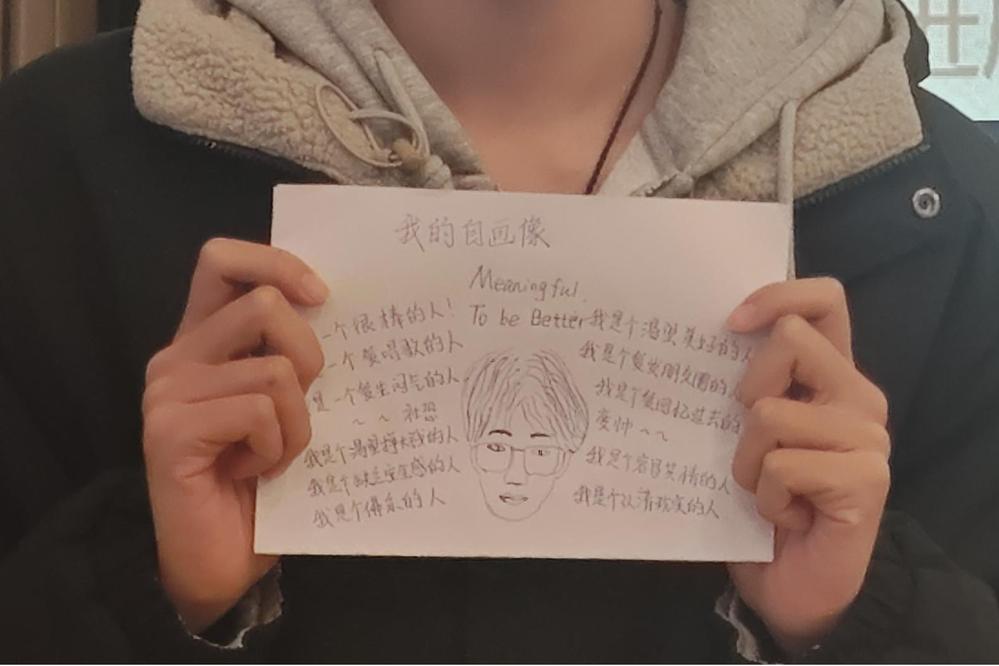 我的自画像
Meaningful.
To be Better
一个很棒的人！
一个爱唱歌的人
是一个爱生闷气的人
~ ~ 社恐
我是个渴望挣大钱的人
我是个缺乏安全感的人
我是个俱乐的人
我是个渴望美好的人
我是个爱发朋友圈的人
我是个爱回忆过去的
变帅 ~ ~
我是个容易共情的人
我是个认清现实的人